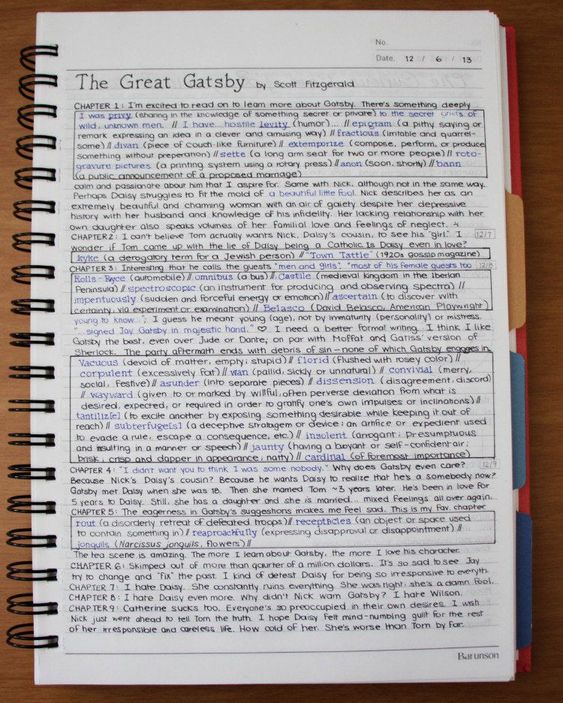 No.
Date. 12 / 6 / 13
The Great Gatsby by Scott Fitzgerald
CHAPTER 1: I'm excited to read on to learn more about Gatsby. There's something deeply
I was privy (sharing in the knowledge of something secret or private) to the secret griefs of
wild, unknown men. // I have... hostile levity (humor)... // epigram (a pithy saying or
remark expressing an idea in a clever and amusing way) // fractious (irritable and quarrel-
some) // divan (piece of couch-like furniture) // extemporize (compose, perform, or produce
something without preperation) // sette (a long seat for two or more people) // roto-
gravure pictures (a printing system using a rotary press) // anon (soon, shortly) // bann
(a public announcement of a proposed marriage)
calm and passionate about him that I aspire for. Same with Nick, although not in the same way.
Perhaps Daisy struggles to fit the mold of a beautiful little fool. Nick describes her as an
extremely beautiful and charming woman with an air of gaiety despite her depressive
history with her husband and knowledge of his infidelity. Her lacking relationship with her
own daughter also speaks volumes of her familial love and feelings of neglect.
CHAPTER 2: I can't believe Tom actually wants Nick, Daisy's cousin, to see his "girl." I 12/7
wonder if Tom came up with the lie of Daisy being a Catholic. Is Daisy even in love?
kyke (a derogatory term for a Jewish person) // "Town Tattle" (1920s gossip magazine)
CHAPTER 3: Interesting that he calls the guests "men and girls"; "most of his female guests too 12/8
Rolls-Royce (automobile) // omnibus (a bus) // Castile (medieval kingdom in the Iberian
Peninsula) // spectroscopic (an instrument for producing and observing spectra) //
impentuously (sudden and forceful energy or emotion) // ascertain (to discover with
certainty, via experiment or examination) // Belasco (David Belasco, American Playwright)
young to know..." I guess he meant young (age), not by immaturity (personality) or mistress.
"...signed Jay Gatsby in majestic hand." ♡ I need a better formal writing. I think I like
Gatsby the best, even over Jude or Dante, on par with Moffat and Gatiss' version of
Sherlock. The party aftermath ends with debris of sin - none of which Gatsby engages in.
Vacuous (devoid of matter, empty; stupid) // florid (flushed with rosey color) //
corpulent (excessively fat) // wan (pallid, sickly or unnatural) // convivial (merry,
social, festive) // asunder (into separate pieces) // dissension (disagreement, discord)
// wayward (given to or marked by willful, often perverse deviation from what is
desired, expected, or required in order to gratify one's own impulses or inclinations) //
tantiliz[e] (to excite another by exposing something desirable while keeping it out of
reach) // subterfuge[s] (a deceptive stratagem or device; an artifice or expedient used
to evade a rule, escape a consequence, etc.) // insolent (arrogant; presumptuous
and insulting in a manner or speech) // jaunty (having a buoyant or self-confident air;
brisk, crisp and dapper in appearance, natty) // cardinal (of foremost importance)
CHAPTER 4: "I didn't want you to think I was some nobody." Why does Gatsby even care? 12/9
Because Nick's Daisy's cousin? Because he wants Daisy to realize that he's a somebody now?
Gatsby met Daisy when she was 18. Then she married Tom ~3 years later. He's been in love for
5 years to Daisy. Still, she has a daughter and she is married... mixed feelings all over again.
CHAPTER 5: The eagerness in Gatsby's suggestions make me feel sad. This is my fav. chapter
rout (a disorderly retreat of defeated troops) // receptacles (an object or space used
to contain something in) // reaproachfully (expressing disapproval or disappointment) //
jonquils (Narcissus jonquils, flowers) //
The tea scene is amazing. The more I learn about Gatsby, the more I love his character.
CHAPTER 6: Skimped out of more than quarter of a million dollars. It's so sad to see Jay
try to change and "fix" the past. I kind of detest Daisy for being so irresponsive to everyth.
CHAPTER 7: I hate Daisy. She constantly ruins everything. She was right; she's a damn fool.
CHAPTER 8: I hate Daisy even more. Why didn't Nick warn Gatsby? I hate Wilson.
CHAPTER 9: Catherine sucks too. Everyone's so preoccupied in their own desires. I wish
Nick just went ahead to tell Tom the truth. I hope Daisy felt mind-numbing guilt for the rest
of her irresponsible and careless life. How cold of her. She's worse than Tom by far.
Barunson